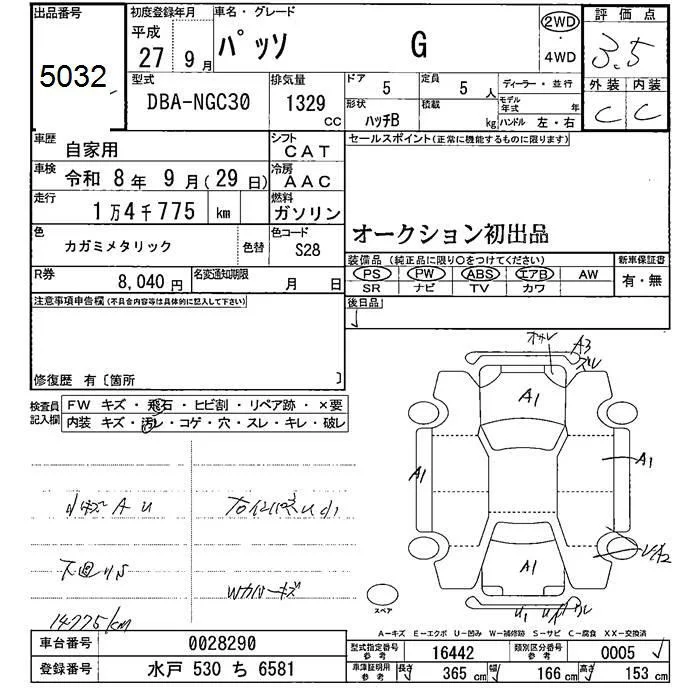 出品番号
5032
初度登録年月
平成
27 年 9 月
車名・グレード
パッソ G
2WD
・
4WD
評価点
3.5
外装 内装
C C
型式
DBA-NGC30
排気量
1329
CC
ドア
5
定員
5 人
形状
ハッチB
積載
kg
ディーラー・並行
モデル年式 年
ハンドル 左・右
車歴
自家用
シフト
CAT
車検
令和 8年 9月(29日)
冷房
AAC
走行
1万4千775 km
燃料
ガソリン
色
カガミメタリック
色替
色コード
S28
R券
8,040円
名変通知期限
月 日
セールスポイント(正常に機能するものに限ります)
オークション初出品
装備品(純正品に限り○をつけてください)
PS PW ABS エアB AW
SR ナビ TV カワ
新車保証書
有・無
後日品
注意事項申告欄(不具合内容等は具体的に記入して下さい)
修復歴 有〔箇所 〕
検査員
記入欄
FW キズ・飛石・ヒビ割・リペア跡・×要
内装 キズ・汚レ・コゲ・穴・スレ・キレ・破レ
小キズ A U
下廻りS
Wカバーキズ
14775km
A3
A1
A1
A1
A1
A2
U1
スペア
A－キズ E－エクボ U－凹み W－補修跡 S－サビ C－腐食 XX－交換済
車台番号 0028290
登録番号 水戸 530 ち 6581
型式指定番号
参考
16442
類別区分番号
参考
0005
車庫証明用
参考
長さ 365 cm 幅 166 cm 高さ 153 cm